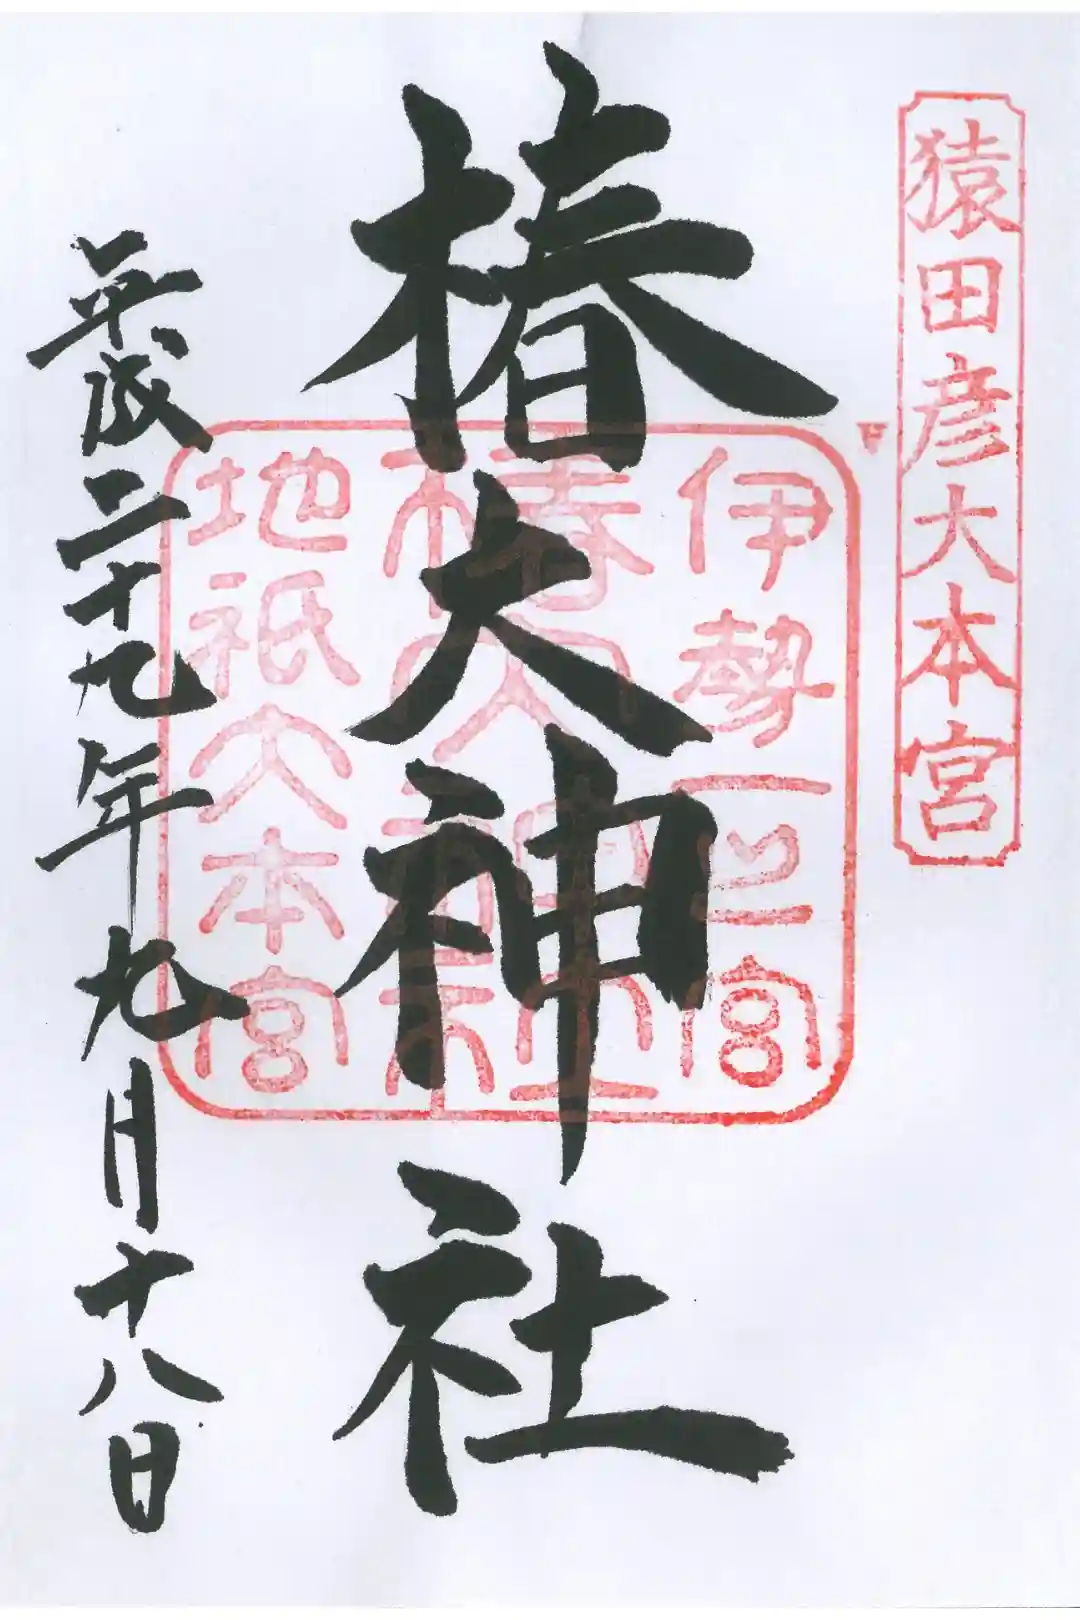 猿田彦大本宮
伊勢一之宮
椿大神社
地祇大本宮
椿大神社
平成二十九年九月十八日